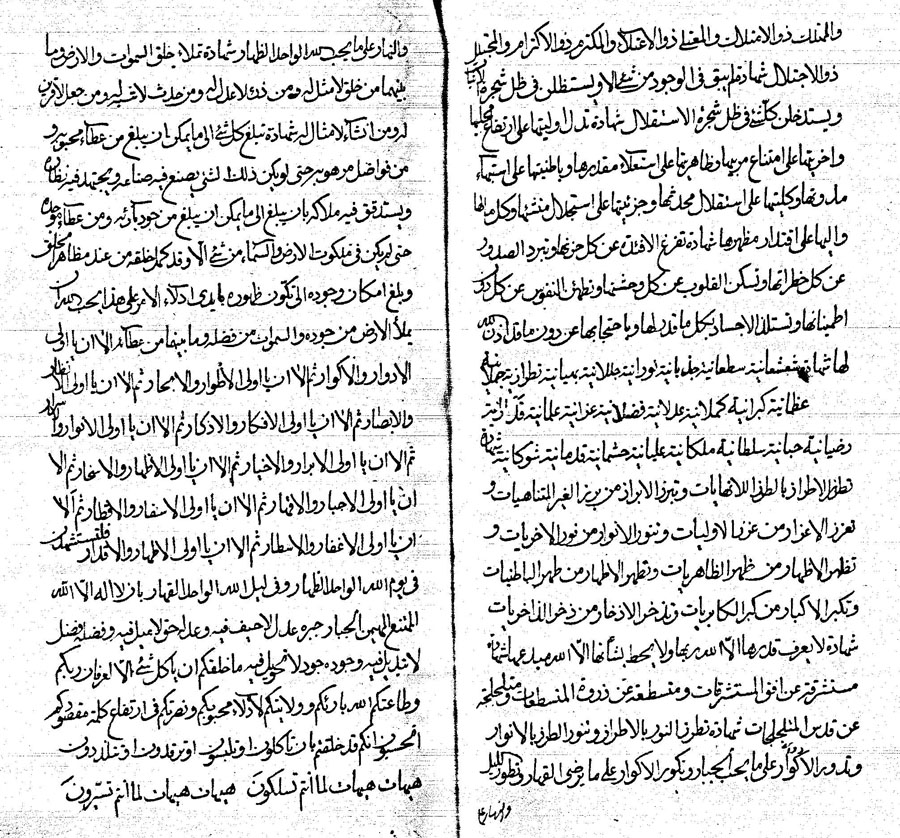 والممتلك ذو الامتلاك والمعتلي ذو الاعتلاء والمكترم ذو الاكترام والمجتلل
ذو الاجتلال شهادة لم يبق في الوجود من شئ الا و يستظلن في ظل شجرة
ويستدخلن كلشئ في ظل شجرة الاستقلال شهادة تدل اوليتها على ارتفاع مجليها
واخريتها على امتناع مربيها وظاهريتها على استعلاء مقدرها وباطنيتها على
وكليتها على استقلال محدثها وجزئيتها على استجلال منشئها وكل مالها
واليها على اقتدار مظهرها شهادة تفرغ الافئدة عن كل حزنها وتبرد الصدور
عن كل خطراتها وتسكن القلوب عن كل وحشتها وتطمئن النفوس عن كل دون
اطمينانها وتستلذ الاجساد بكل ما قد لها وباحتجابها عن دون ما قد اذن الله
لها شهادة شعشعانية سطعانية جذبانية نورانية جللانية بهيانية
عظمانية كبرانية كملانية عدلانية فضلانية عزانية علمانية
رضيانية حبانية سلطانية ملكانية عليانية حشمانية قدمانية شوكانية شهادة
تطرز الاطراز بالطرز اللانهايات وتبرز الابراز من برز الغير المتناهيات و
تعزز الاعزاز من عزز الاوليات وتنور الانوار من نور الاخريات و
تظهر الاظهار من ظهر الظاهريات وتطهر الاطهار من طهر الباطنيات
وتكبر الاكبار من كبر الكابريات وتذخر الاذخار من ذخر الذاخريات
شهادة لا يعرف قدرها الا الله ربها ولا يحيط بشأنها الا الله مبدعها شهادة
مستشرقة عن افق المستشرقات و متسطعة عن ذروة المتسطعات
عن قدس المتجلجات شهادة تطرز النور بالاطراز وتنور الطرز بالانوار
وتدور الاكوار على ما يحب الجبار وتكور الاكوار على ما يرضى القهار
والنهار على
والنهار على ما يحب لله الواحد الظهار شهادة تملاء خلق السموات والارض وما
بينهما من خلق لا مثل له ومن ذكر لا عدل له ومن حدث لا شبه له ومن جعل لا قرين
له ومن انشاء لا مثال له شهادة تبلغ كلشئ الى ما يمكن ان يبلغ من عطاء محبوبه و
من فواضل موهوبه حتى لو يكن ذلك الشئ يصنع فيه صناعه و يجتهد فيه
ويستدقق فيه ملاكه بان يبلغ الى ما يمكن ان يبلغ من جود بارئه ومن عطاء
حتى لم يكن في ملكوت الارض والسماء من شئ الا وقد كمل خلقه من عند مظاهر
وبلغ امكان وجوده الى تكون ظهوره بايدي ادلاء الامر على هذا يحب الله ان
يملأ الارض من جوده والسموات من فضله وما بينهما من عطائه الا ان يا اولى
الادوار والاكوار ثم الا ان يا اولى الاطوار و ثم الا ان يا اولى الانظار
والابصار ثم الا ان يا اولى الافكار والاذكار ثم الا ان يا اولى الانوار و
ثم الا ان يا اولى الابرار والاخيار ثم الا ان يا اولى الاظهار والاسحار ثم الا
ان يا اولى الاجبار والاقهار ثم الا ان يا اولى الاسفار والاقطار ثم الا
ان يا اولى الاغفار والاسطار ثم الا ان يا اولى الاطهار والاقدار فلتستشهدن
في يوم الله الواحد الظهار وفي ليل الله الواحد القهار بان لا اله الا الله
الممتنع المهيمن الجبار جبره عدل لا حيف فيه وعدله حق لا ميل فيه وفضله فضل
لا تبديل فيه وجوده جود لا تحويل فيه ما خلقكم ان يا كل شئ الا لعرفان ربكم
وطاعتكم الله بارئكم و ولايتكم لادلاء محبوبكم ونصرتكم في ارتفاع كلمة مقصودكم
اتحسبون انكم قد خلقتم بان تأكلون او تلبسون او ترقدون او تتلذذون
هيهات هيهات لما انتم تسلكون هيهات هيهات لما انتم تسترون